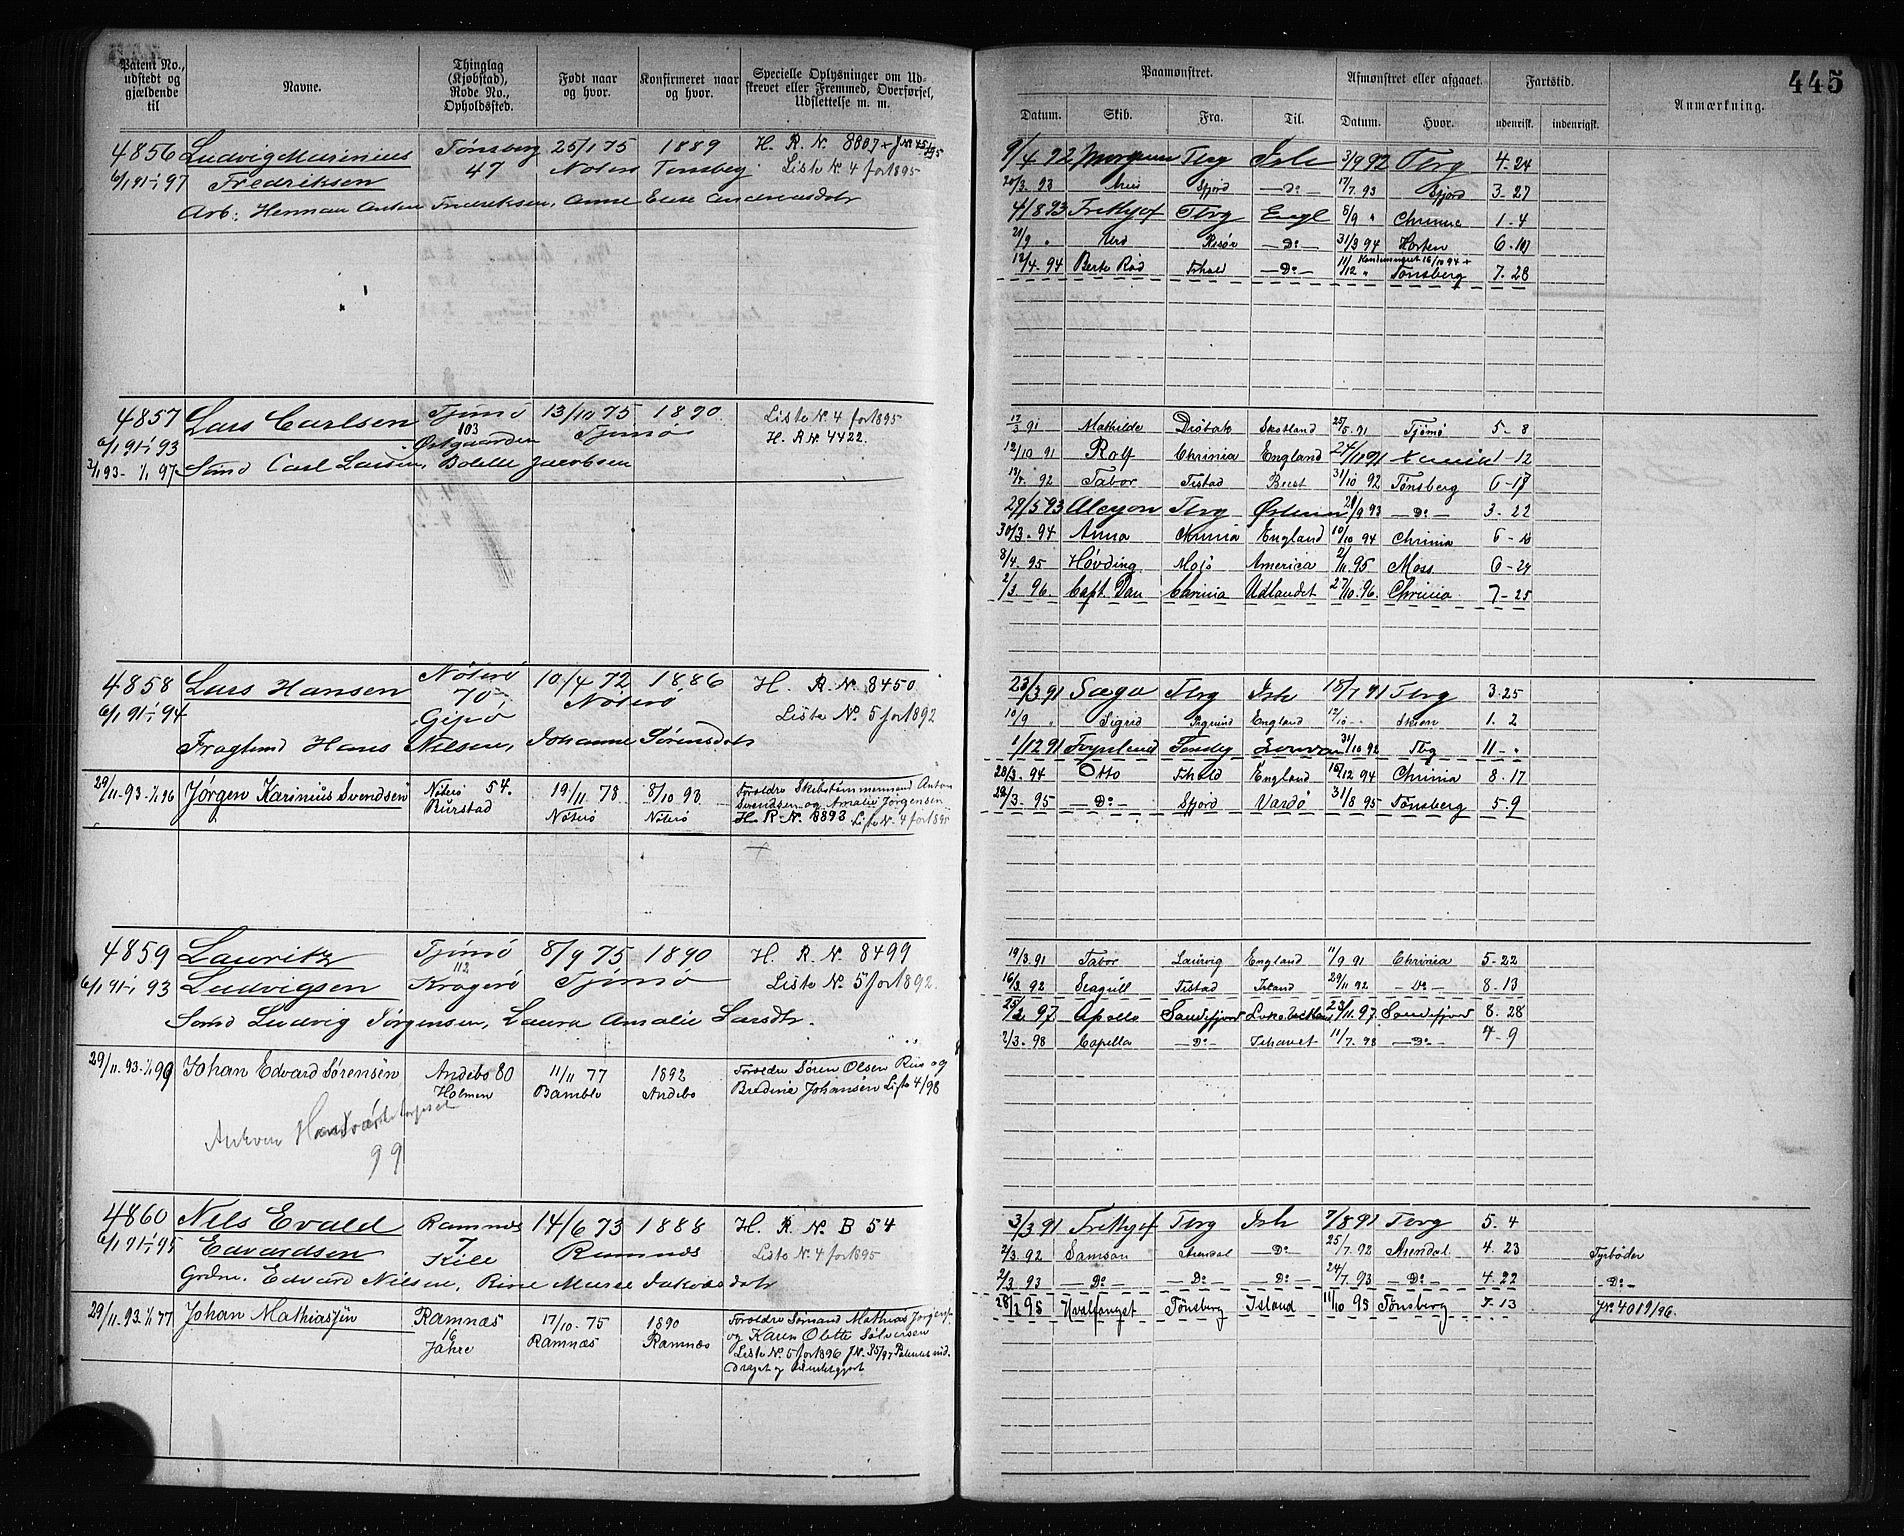 445
Patent No., udstedt og gjældende til
Navne.
Thinglag (Kjøbstad), Rode No., Opholdssted.
Født naar og hvor.
Konfirmeret naar og hvor.
Specielle Oplysninger om Udskrevet eller Fremmed, Overførsel, Udslettelse m. m.
Paamønstret.
Afmønstret eller afgaaet.
Fartstid.
Anmærkning.
Datum. Skib. Fra. Til. Datum. Hvor. udenrisk. indenrigsk.
4856 Ludvig Marinius Tønsberg 25/1 75 1889 H. R. N. 8807
6/1 91-1/1 97 Fredriksen 47 Nøterø Tønsberg Liste N. 4 for 1895
Arb: Herman Anton Fredriksen, Anne Andreasdatr
9/4 92 Tbrg Ish 3/9 92 Tbrg 4-24
20/3 93 Sfjord -Do- 17/7 93 Sfjord 3-27
4/8 93 Frithjof Tbrg Engl 5/9 " Chrinia 1-4
21/9 " Risør -Do- 31/3 94 Horten 6-10
12/4 94 Berte Rød Fhald -Do- 11/12 " Tønsberg 7-28
4857 Lars Carlsen Tjømø 13/11 75 1890 Liste N. 4 for 1895
6/1 91-1/1 93 103 Østgaarden Tjømø H. R. N. 4422.
3/1 93-1/1 97 Sømd Carl Larsen, Bolette Jacobsen
17/3 91 Mathilde Drøbak Skotland 25/8 91 Tjømø 5-8
12/10 91 Rolf Chrinia England 24/11 91 1-12
13/4 92 Tabor Fistad Brest 31/10 92 Tønsberg 6-18
29/5 93 Alcyon Tbrg 21/9 93 -Do- 3-22
30/3 94 Anna Chrinia England 10/10 94 Chrinia 6-10
8/4 95 Høvding Moss America 2/11 95 Moss 6-24
2/3 96. Capt. Dan Chrinia Udlandet 27/10 96. Chrinia 7-25
4858 Lars Hansen Nøterø 10/4 72 1886 H. R. N. 8450
6/1 91-1/1 94 70 Gipø Nøterø Liste No. 5 for 1892
Fraglmd Hans Nilsen, Johanne Sørensdatr
23/3 91 Saga Tbrg Ish 18/7 91 Tbrg 3-25
10/9 " Sigrid England 12/10 " Skien 1-2
1/12 91 31/10 92 Tbg 11-"
28/3 94 Otto Fhald England 15/12 94 Chrinia 8-17
22/3 95 -Do- Sfjord Vardø 31/8 95 Tønsberg 5-9
29/11-93-1/1 96 Jørgen Karinius Svendsen Nøterø 54. Burstad 19/11 78 Nøterø 8/10 93 Nøterø
Foreldre Skibstømmermand Anton
Svendsen og Amalie Jørgensen
H. R. N. 8893 Liste N. 4 for 1895
4859 Lauritz Tjømø 8/9 75 1890 H. R. N. 8499
6/1 91-1/1 93 Ludvigsen 112 Kragerø Tjømø Liste No. 5 for 1892.
Sømd Ludvig Jørgensen, Laura Amalie Larsdtr.
19/3 91 Tabor Laurvig England 11/9 91 Chrinia 5-22
16/3 92 Seagull Fistad Island 29/11 92 -Do- 8-13
25/2 97 Apollo Sandefjord 23/11 97 Sandefjord 8-28
2/3-98 Capella -Do- Ishavet 11/7 98 -Do- 4-9
29/11-93-1/1 99 Johan Edvard Sørensen Andebo 80 Holmen 11/11 77 Bamble 1892 Andebo
Foreldre Søren Olsen Riis og
Bredine Johansen Liste 4/98
99
4860 Nils Evald Ramnæs 14/6 73 1888 H. R. N. B 54
6/1 91-1/1 95 Edvardsen 7 Kile Ramnæs Liste N. 4 for 1895
Grdm. Edvard Nilsen, Rise Marie Jakobsdatr
3/3 91 Frithjof Tbrg Ish 7/8 91 Tbrg 5-4
2/3 92 Samson Arendal -Do- 25/7 92 Arendal 4-23 Fyrbøder
2/3 93 -Do- -Do- -Do- 24/7 93 -Do- 4-22 -Do-
28/2 95 Hvalfanget Tønsberg Island 11/10 95 Tønsberg 7-13 JN. 4019/96.
29/11-93-1/1 77 Johan Mathiassen Ramnæs 16 Jahre 17/10-75 Ramnæs 1890 Ramnæs
Foreldre Sømand Mathias Jørgens.
og Karen Olette Sølversen
Liste No. 5 for 1896 JN. 35/97 Patentet ind-
draget og